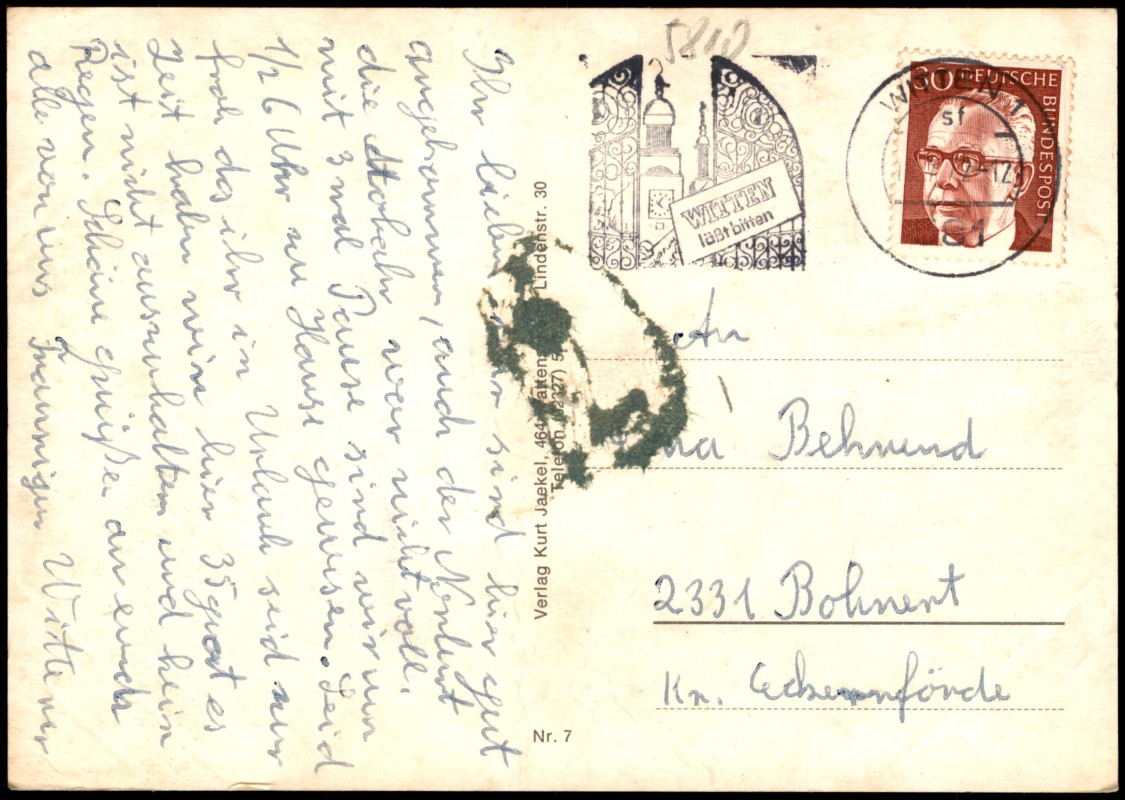 5810
WITTEN
läßt bitten
WITTEN 1
sf
81
30 DEUTSCHE BUNDESPOST
Ihr lieben wir sind hier gut
angekommen, auch der Verkert
die Autobahn war nicht voll.
mit 3 mal Pause sind wir um
1/2 6 Uhr zu Hause gewesen. Seid
froh das ihr in Urlaub seid nur
zeit haben wir hier 35 grat es
ist nicht auszuhalten und kein
Regen. Schöne Grüße an euch
alle von uns Wittener
Verlag Kurt Jaekel, 464 Watten Lindenstr. 30
Telefon (02327) 5
Nr. 7
An
Behrend
2331 Bohnert
Kr. Eckernförde